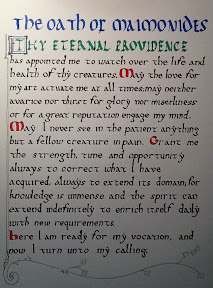 The Oath of Maimonides
Thy Eternal Providence
has appointed me to watch over the life and
health of thy creatures. May the love for
my art actuate me at all times; may neither
avarice nor thirst for glory nor miserliness
or for a great reputation engage my mind.
May I never see in the patient anything
but a fellow creature in pain. Grant me
the strength, time and opportunity
always to correct what I have
acquired, always to extend its domain, for
knowledge is immense and the spirit can
extend indefinitely to enrich itself daily
with new requirements.
Here I am ready for my vocation, and
now I turn unto my calling.